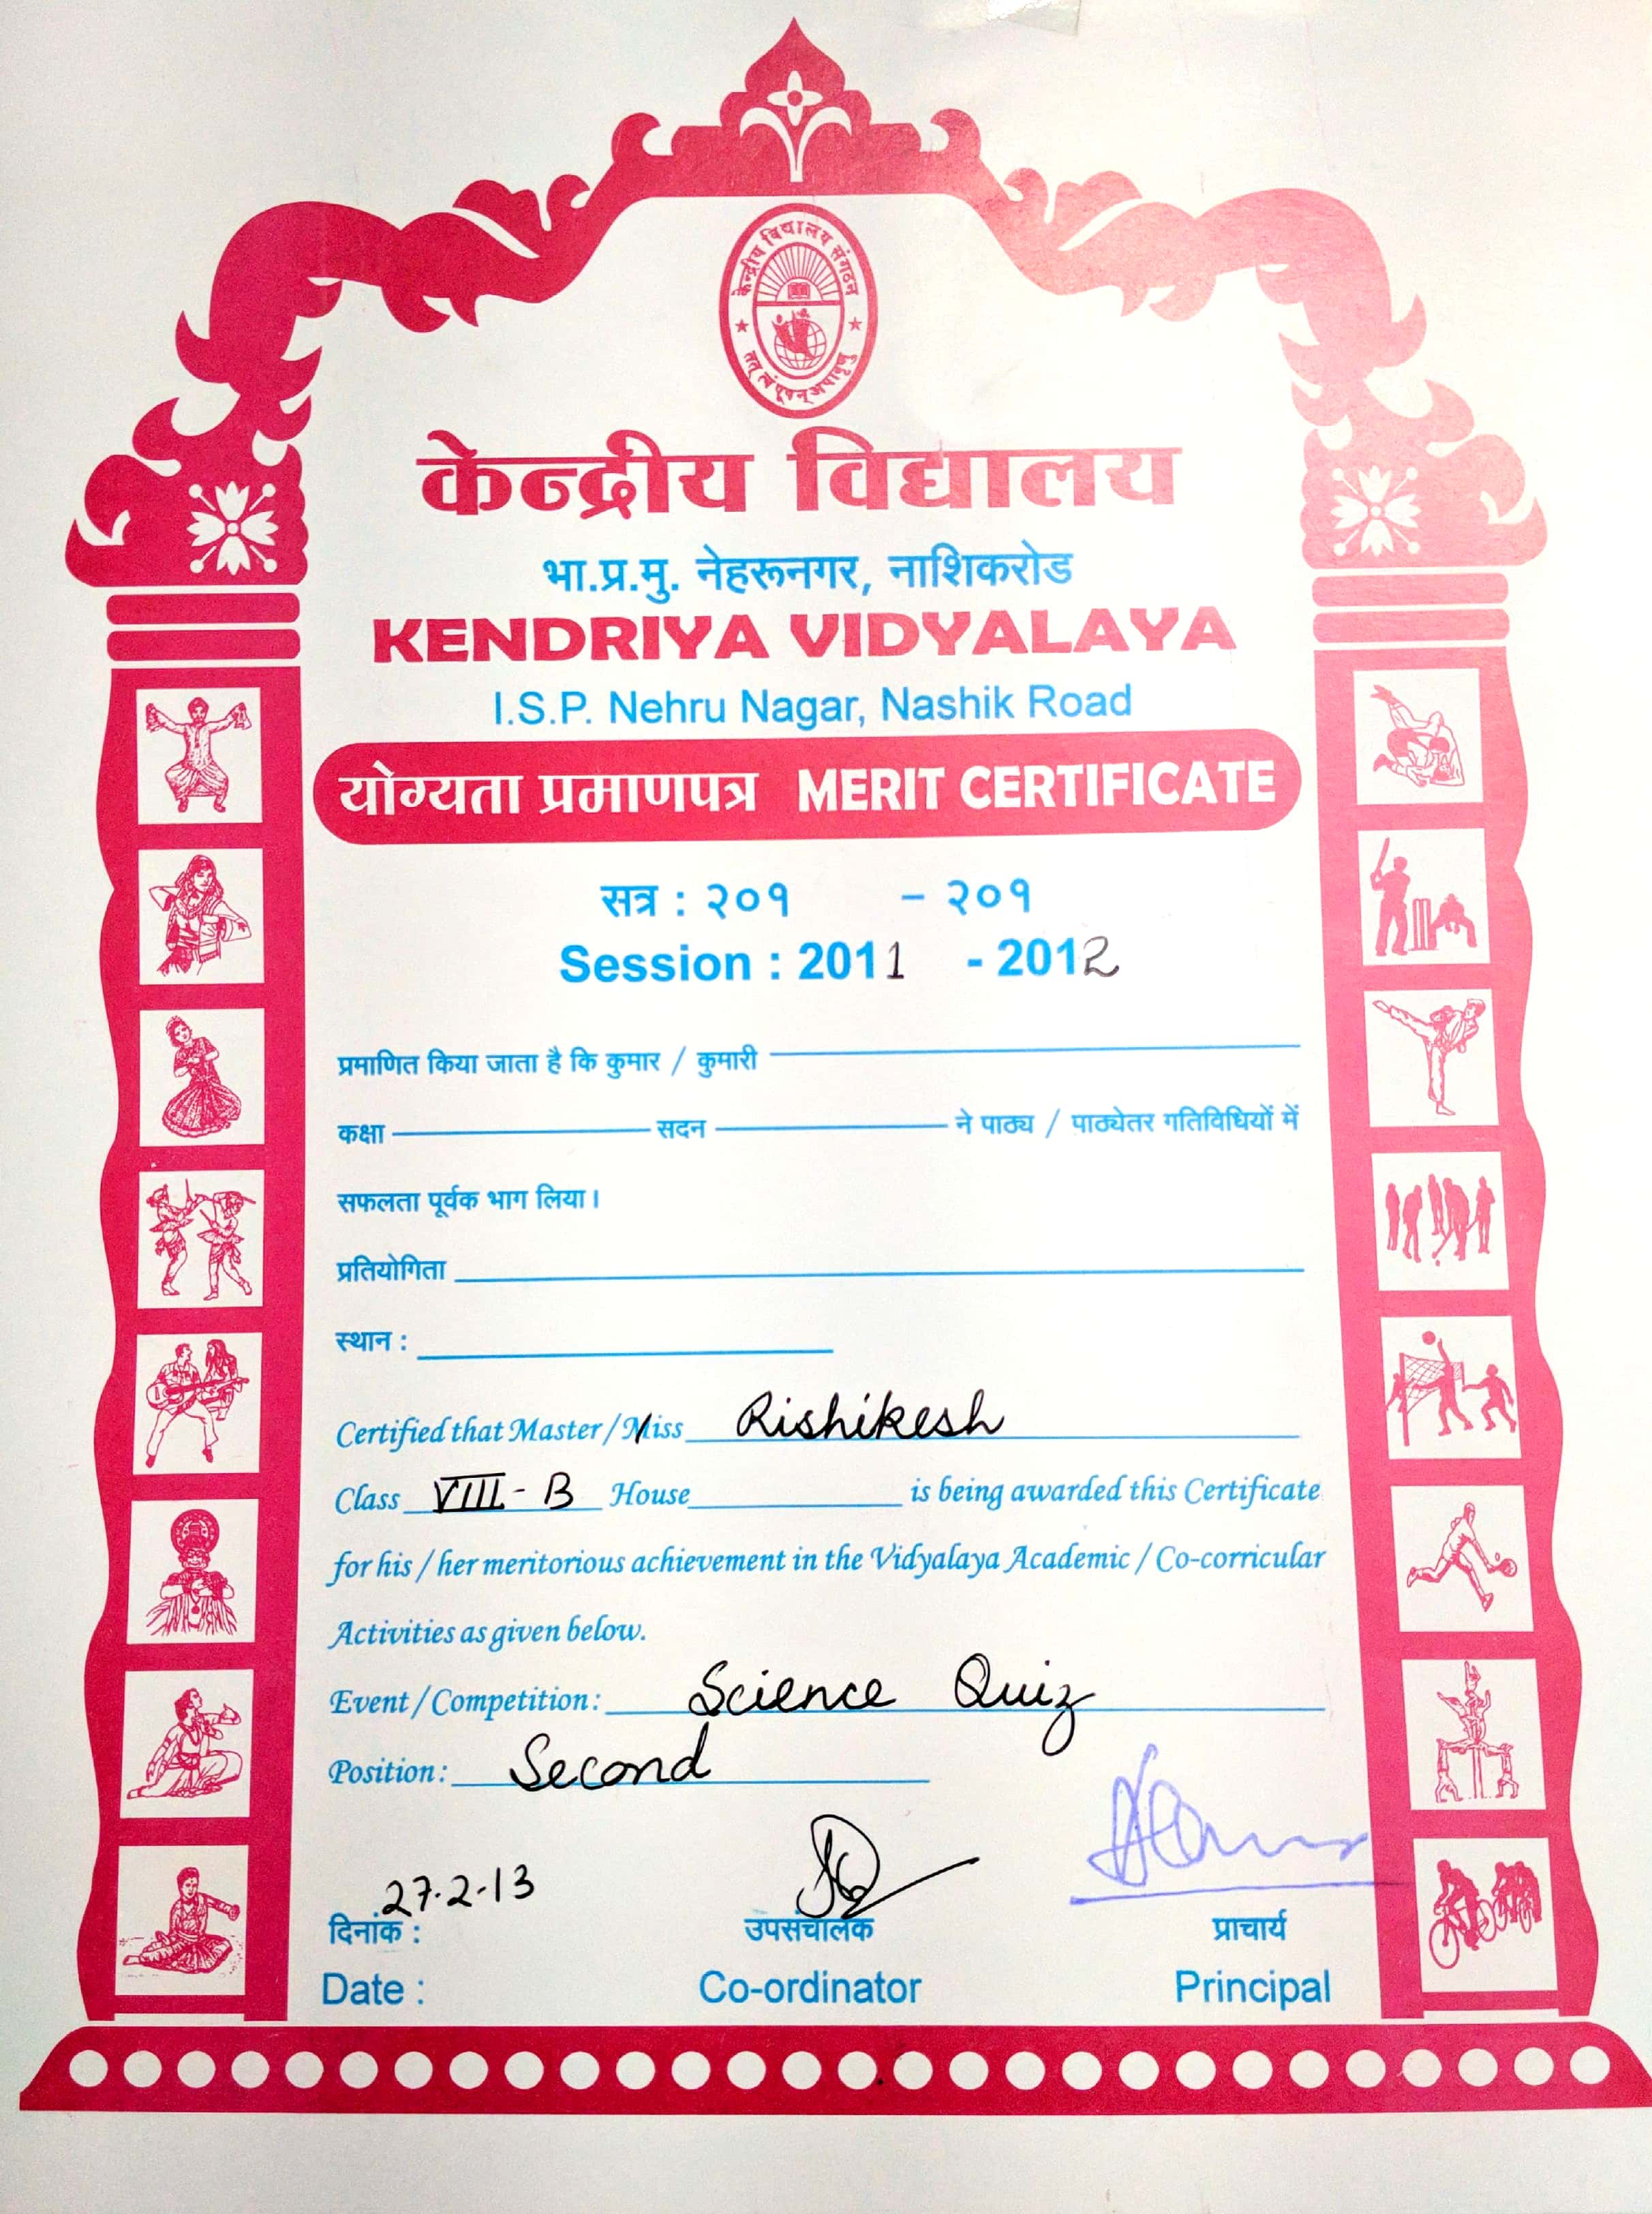 केन्द्रीय विद्यालय संगठन
तत् त्वं पूषन् अपावृणु
केन्द्रीय विद्यालय
भा.प्र.मु. नेहरूनगर, नाशिकरोड
KENDRIYA VIDYALAYA
I.S.P. Nehru Nagar, Nashik Road
योग्यता प्रमाणपत्र MERIT CERTIFICATE
सत्र : २०१ - २०१
Session : 2011 - 2012
प्रमाणित किया जाता है कि कुमार / कुमारी
कक्षा सदन ने पाठ्य / पाठ्येतर गतिविधियों में
सफलता पूर्वक भाग लिया।
प्रतियोगिता
स्थान :
Certified that Master / Miss Rishikesh
Class VIII - B House is being awarded this Certificate
for his / her meritorious achievement in the Vidyalaya Academic / Co-corricular
Activities as given below.
Event / Competition : Science Quiz
Position : Second
27.2.13
दिनांक : उपसंचालक प्राचार्य
Date : Co-ordinator Principal